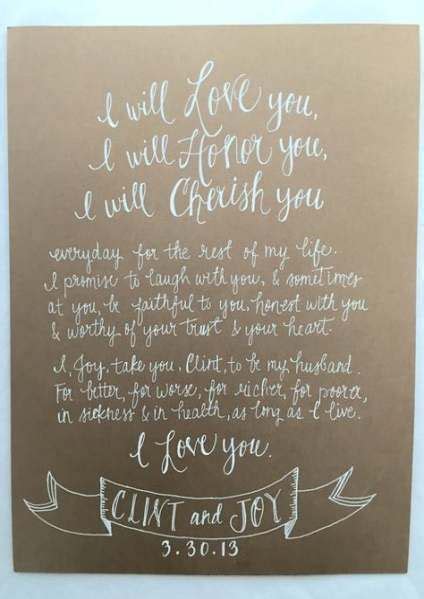 I will Love you,
I will Honor you,
I will Cherish you
everyday for the rest of my life.
I promise to laugh with you, & sometimes
at you, be faithful to you, honest with you
& worthy of your trust & your heart.
I, Joy, take you, Clint, to be my husband.
For better, for worse, for richer, for poorer,
in sickness & in health, as long as I live.
I Love you.
CLINT and JOY
3.30.13